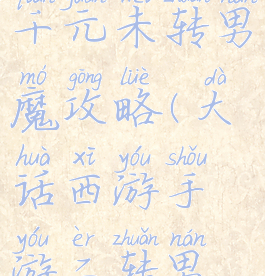 千元未转男
mó gōng lüè dà
魔攻略(大
huà xī yóu shǒu
话西游手
yóu èr zhuǎn nán
游二转男